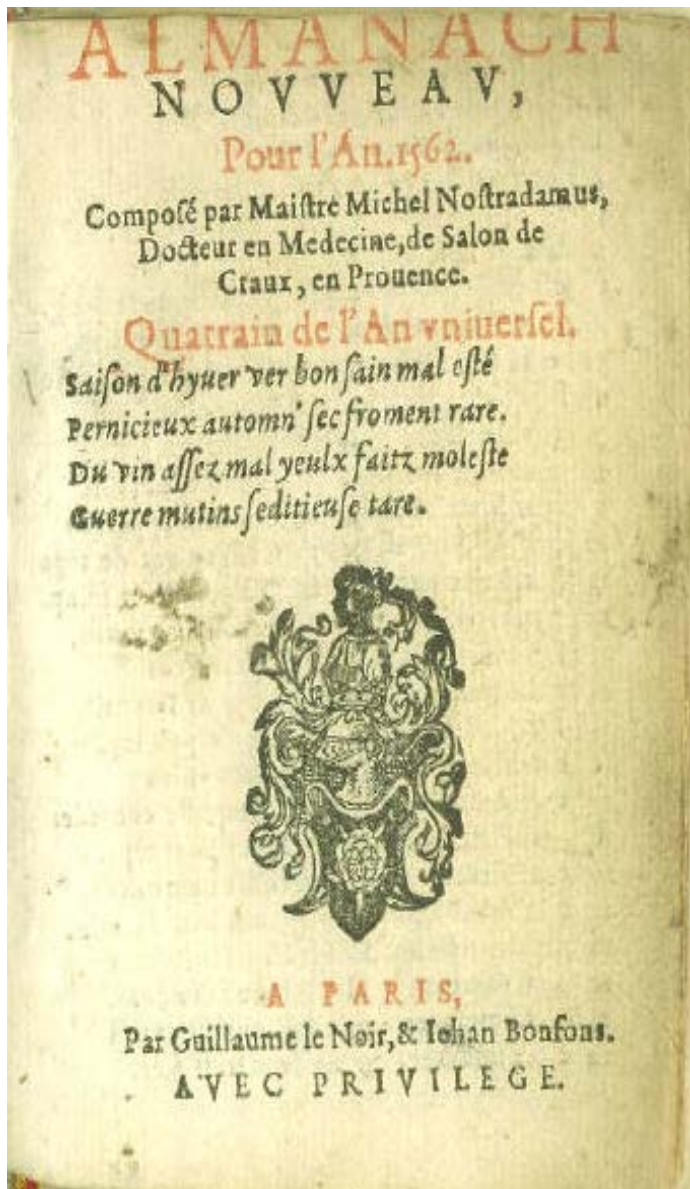 ALMANACH
NOVVEAV,
Pour l'An.1562.
Composé par Maistre Michel Nostradamus,
Docteur en Medecine, de Salon de
Craux, en Prouence.
Quatrain de l'An vniuersel.
Saison d'hyuer ver bon sain mal esté
Pernicieux automn' sec froment rare.
Du vin assez mal yeulx faitz moleste
Guerre mutins seditieuse tare.
A PARIS,
Par Guillaume le Noir, & Iehan Bonfons.
AVEC PRIVILEGE.